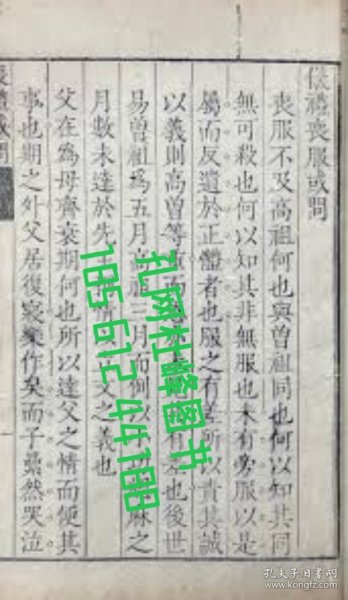 儀禮喪服或問
喪服不及高祖何也與曾祖同也何以知其同
無可殺也何以知其非無服也未有旁服以是
屬而反遺於正體者也服之有差所以責其誠
以義則高曾等也後世
易曾祖為五月高祖三月而例以麻之
月數未達於先王之義也
父在為母齊衰期何也所以達父之情而便其
事也期之外父居復寢樂作矣而子纍然哭泣
孔网杜峰图书
18561244188
孔夫子旧书网